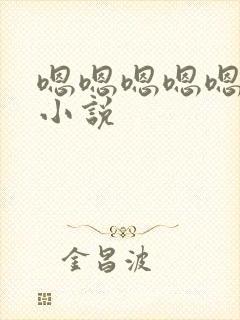 嗯嗯嗯嗯嗯
小説
金昌波